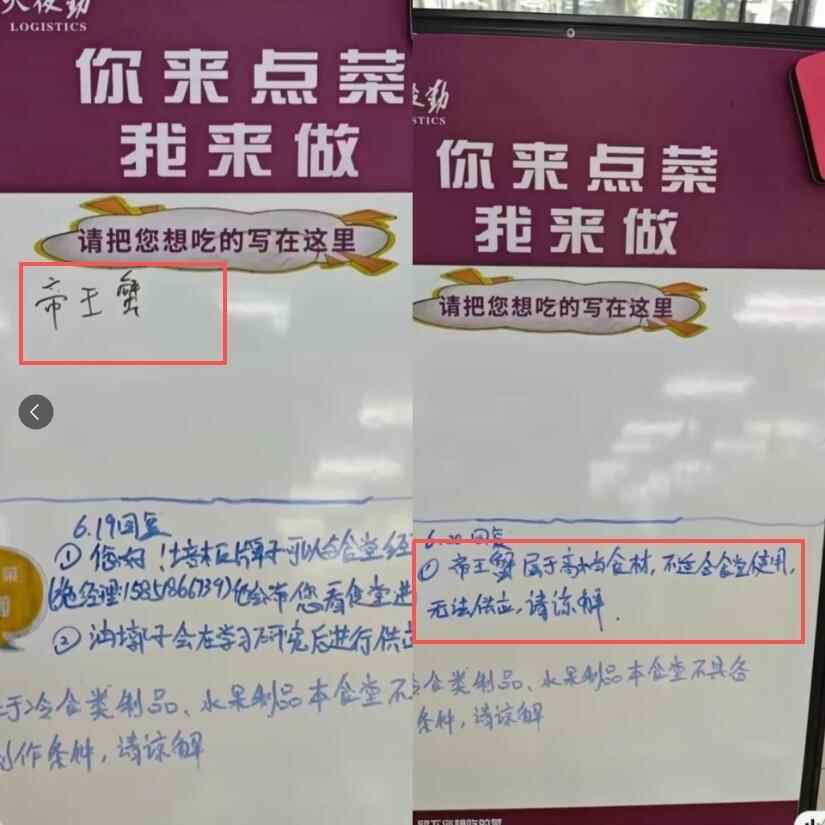 LOGISTICS
你来点菜
我来做
请把您想吃的写在这里
帝王蟹
6.19回复
① 您好！
可以与食堂经
带您看食堂进
② 油墩子会在学习研究后进行供应
冷食类制品、水果制品本食堂不
作条件，请谅解
勤
STICS
你来点菜
我来做
请把您想吃的写在这里
6.20 回复
① 帝王蟹属于高档食材，不适合食堂使用，
无法供应，请谅解.
冷食类制品、水果制品本食堂不具备
条件，请谅解